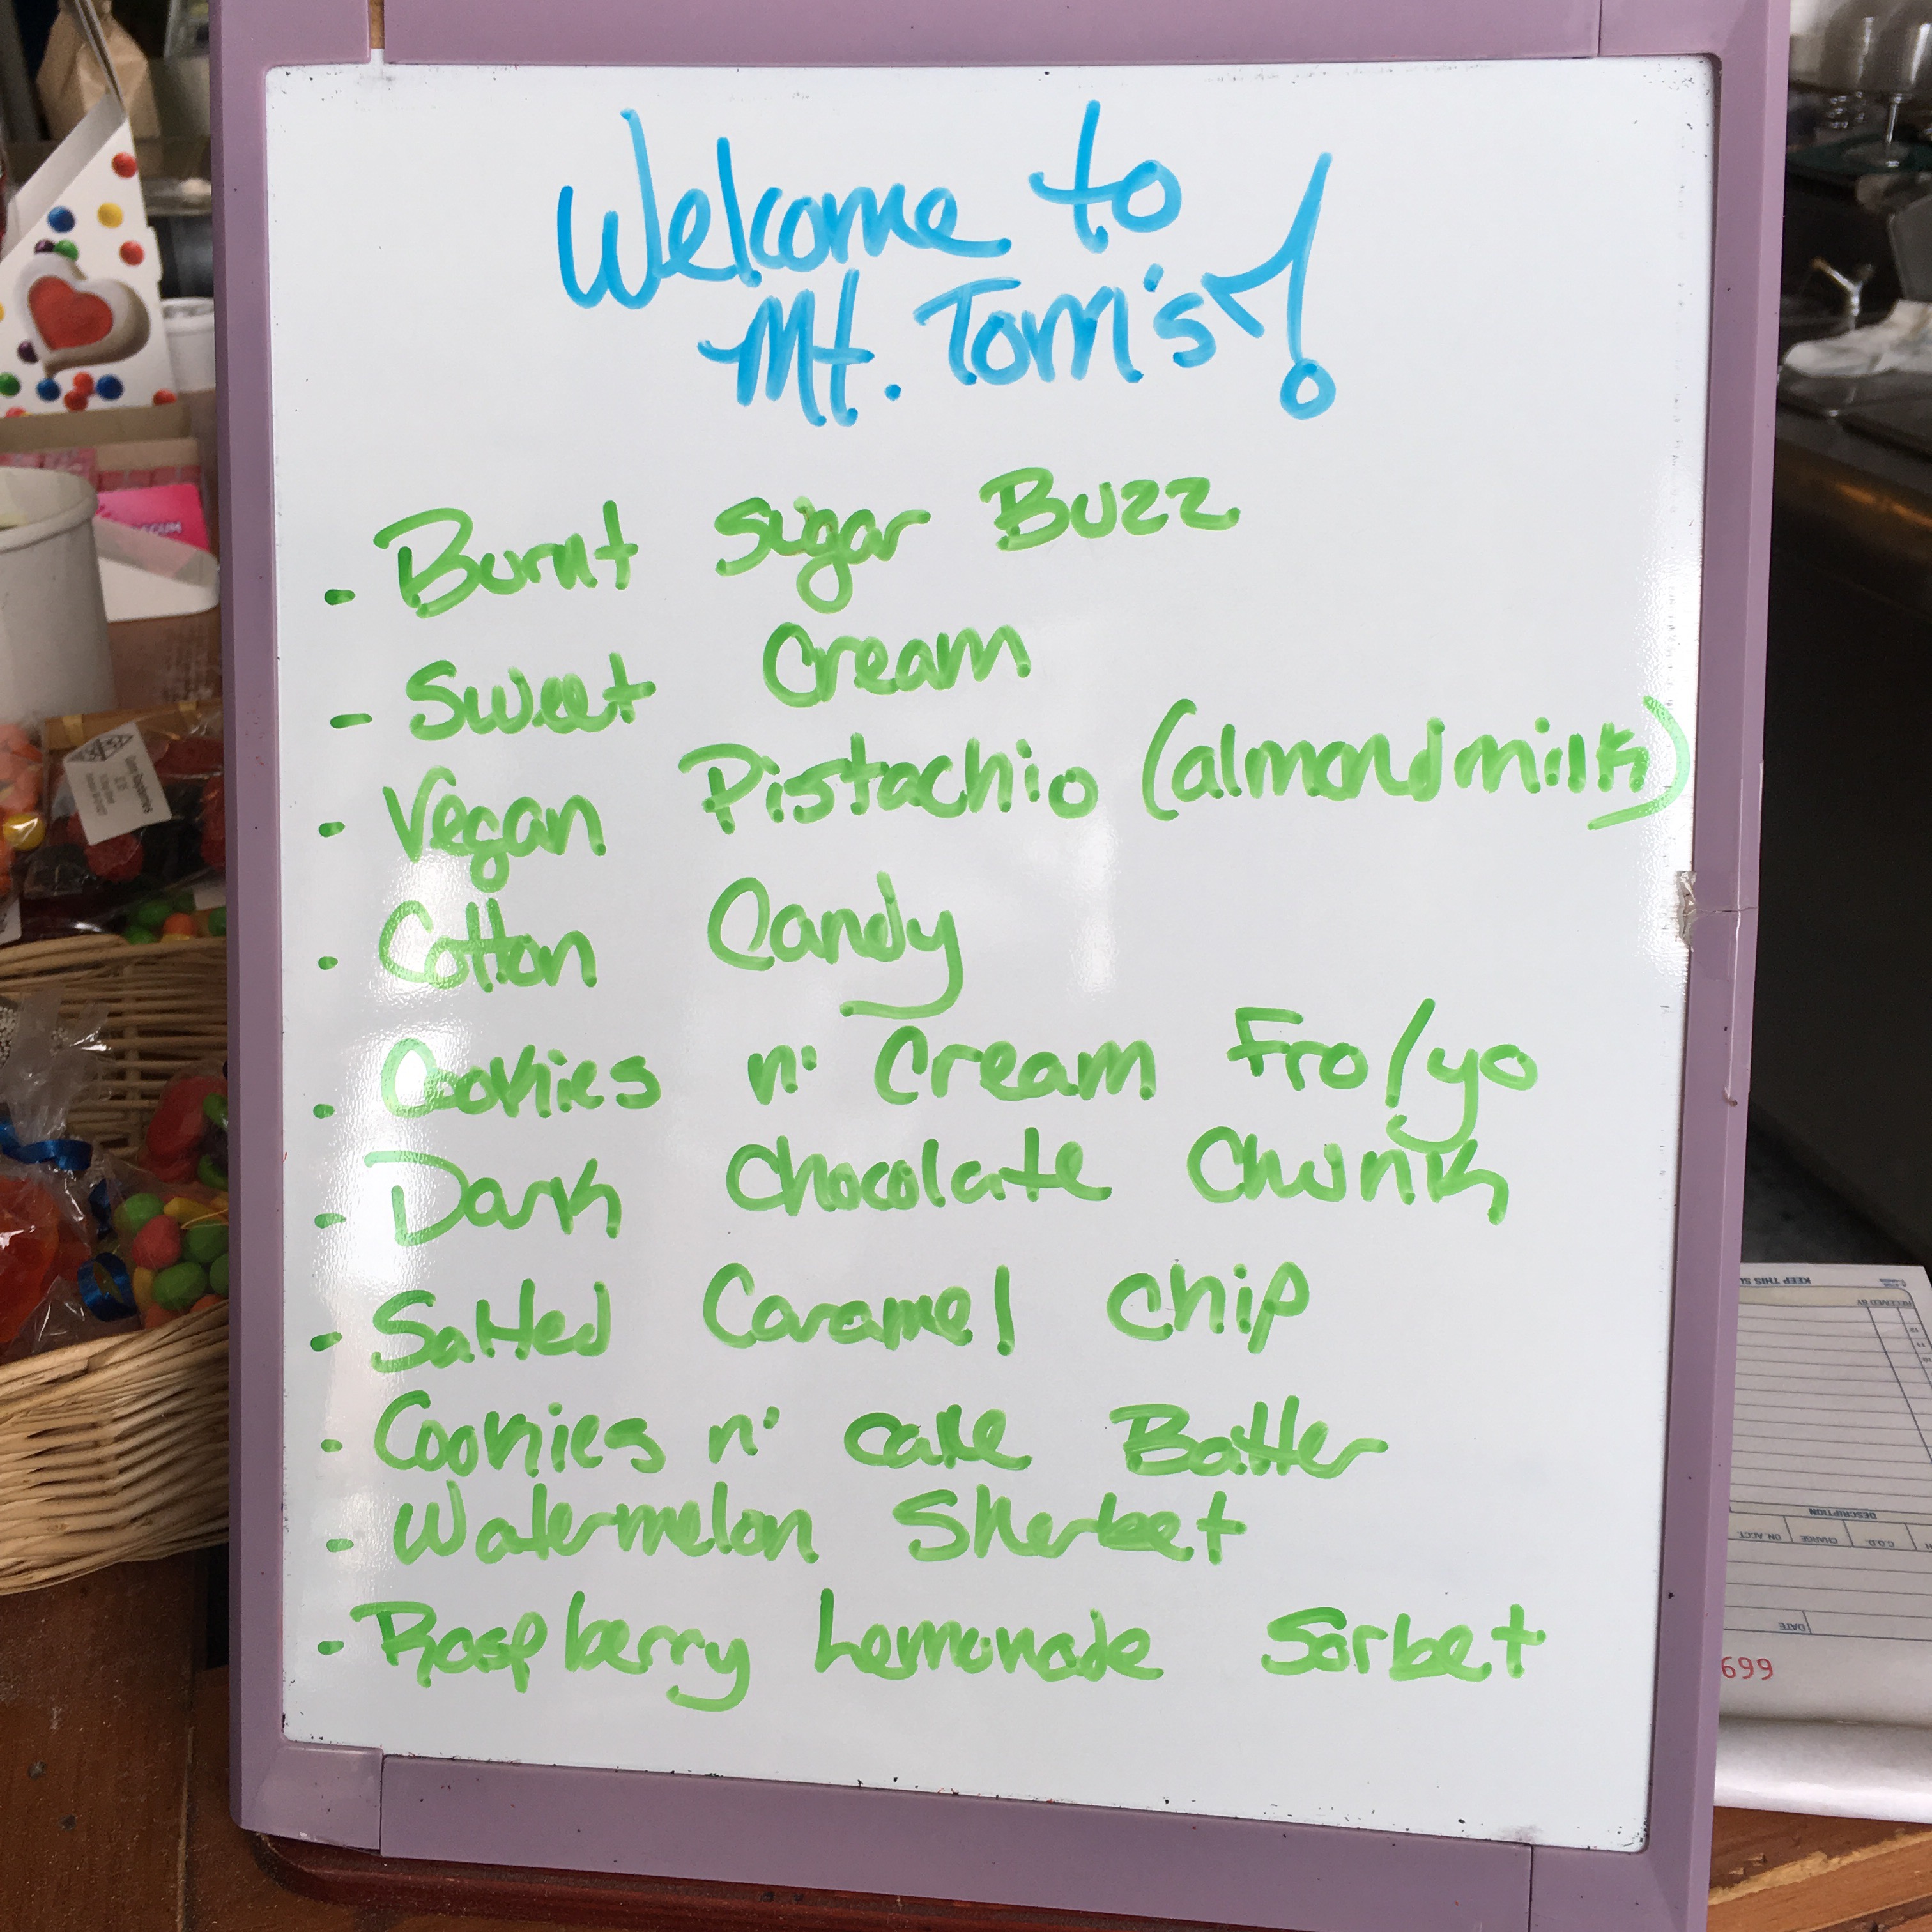 Welcome to
Mt. Tom's!
- Burnt Sugar Buzz
- Sweet Cream
- Vegan Pistachio (almondmilk)
- Cotton Candy
- Cookies n' Cream Fro/yo
- Dark Chocolate Chunk
- Salted Caramel Chip
- Cookies n' Cake Batter
- Watermelon Sherbet
- Raspberry Lemonade Sorbet
KEEP THIS SL
RECEIVED BY
DESCRIPTION
C.O.D. CHARGE ON. ACCT.
DATE
699